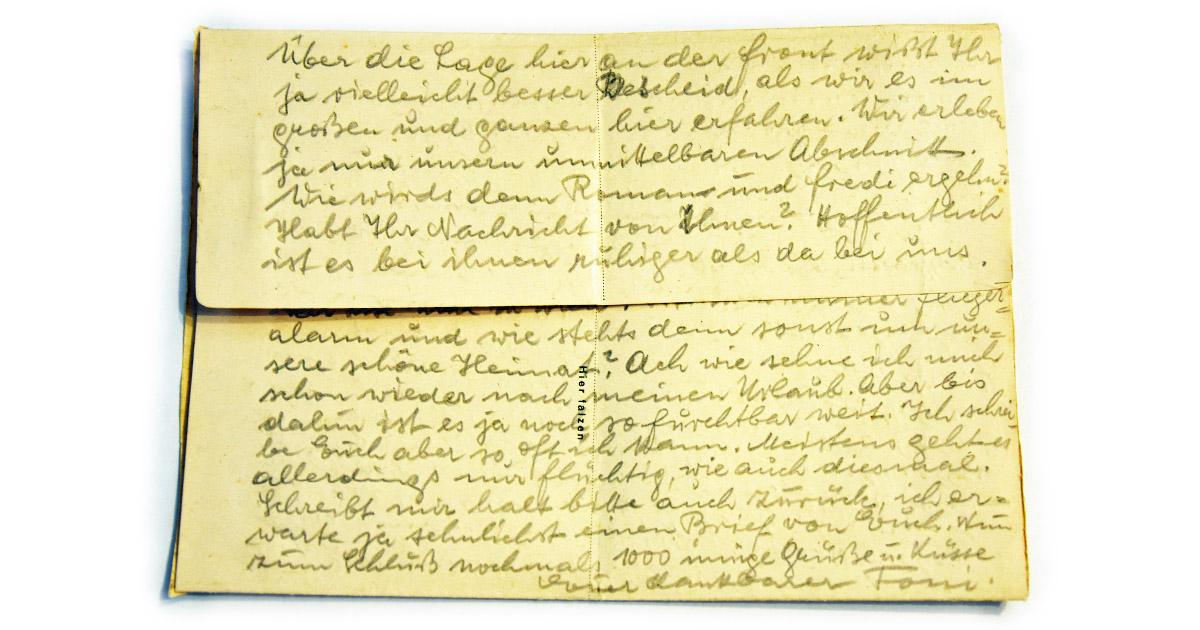 Über die Lage hier an der Front wißt Ihr
ja vielleicht besser Bescheid, als wir es im
großen und ganzen hier erfahren. Wir erleben
ja nur unsern unmittelbaren Abschnitt.
Wie wirds denn Roman und Fredi ergehn?
Habt Ihr Nachricht von Ihnen? Hoffentlich
ist es bei ihnen ruhiger als da bei uns.
immer Flieger=
alarm und wie stehts denn sonst um un=
sere schöne Heimat? Ach wie sehne ich mich
schon wieder nach meinen Urlaub. Aber bis
dahin ist es ja noch so furchtbar weit. Ich schrei
be Euch aber so oft ich kann. Meistens geht es
allerdings nur flüchtig, wie auch diesmal.
Schreibt mir halt bitte auch zurück, ich er=
warte ja sehnlichst einen Brief von Euch. Nun
zum Schluß nochmals 1000 innige Grüße u. Küsse
Euer dankbarer Toni.
Hier falzen